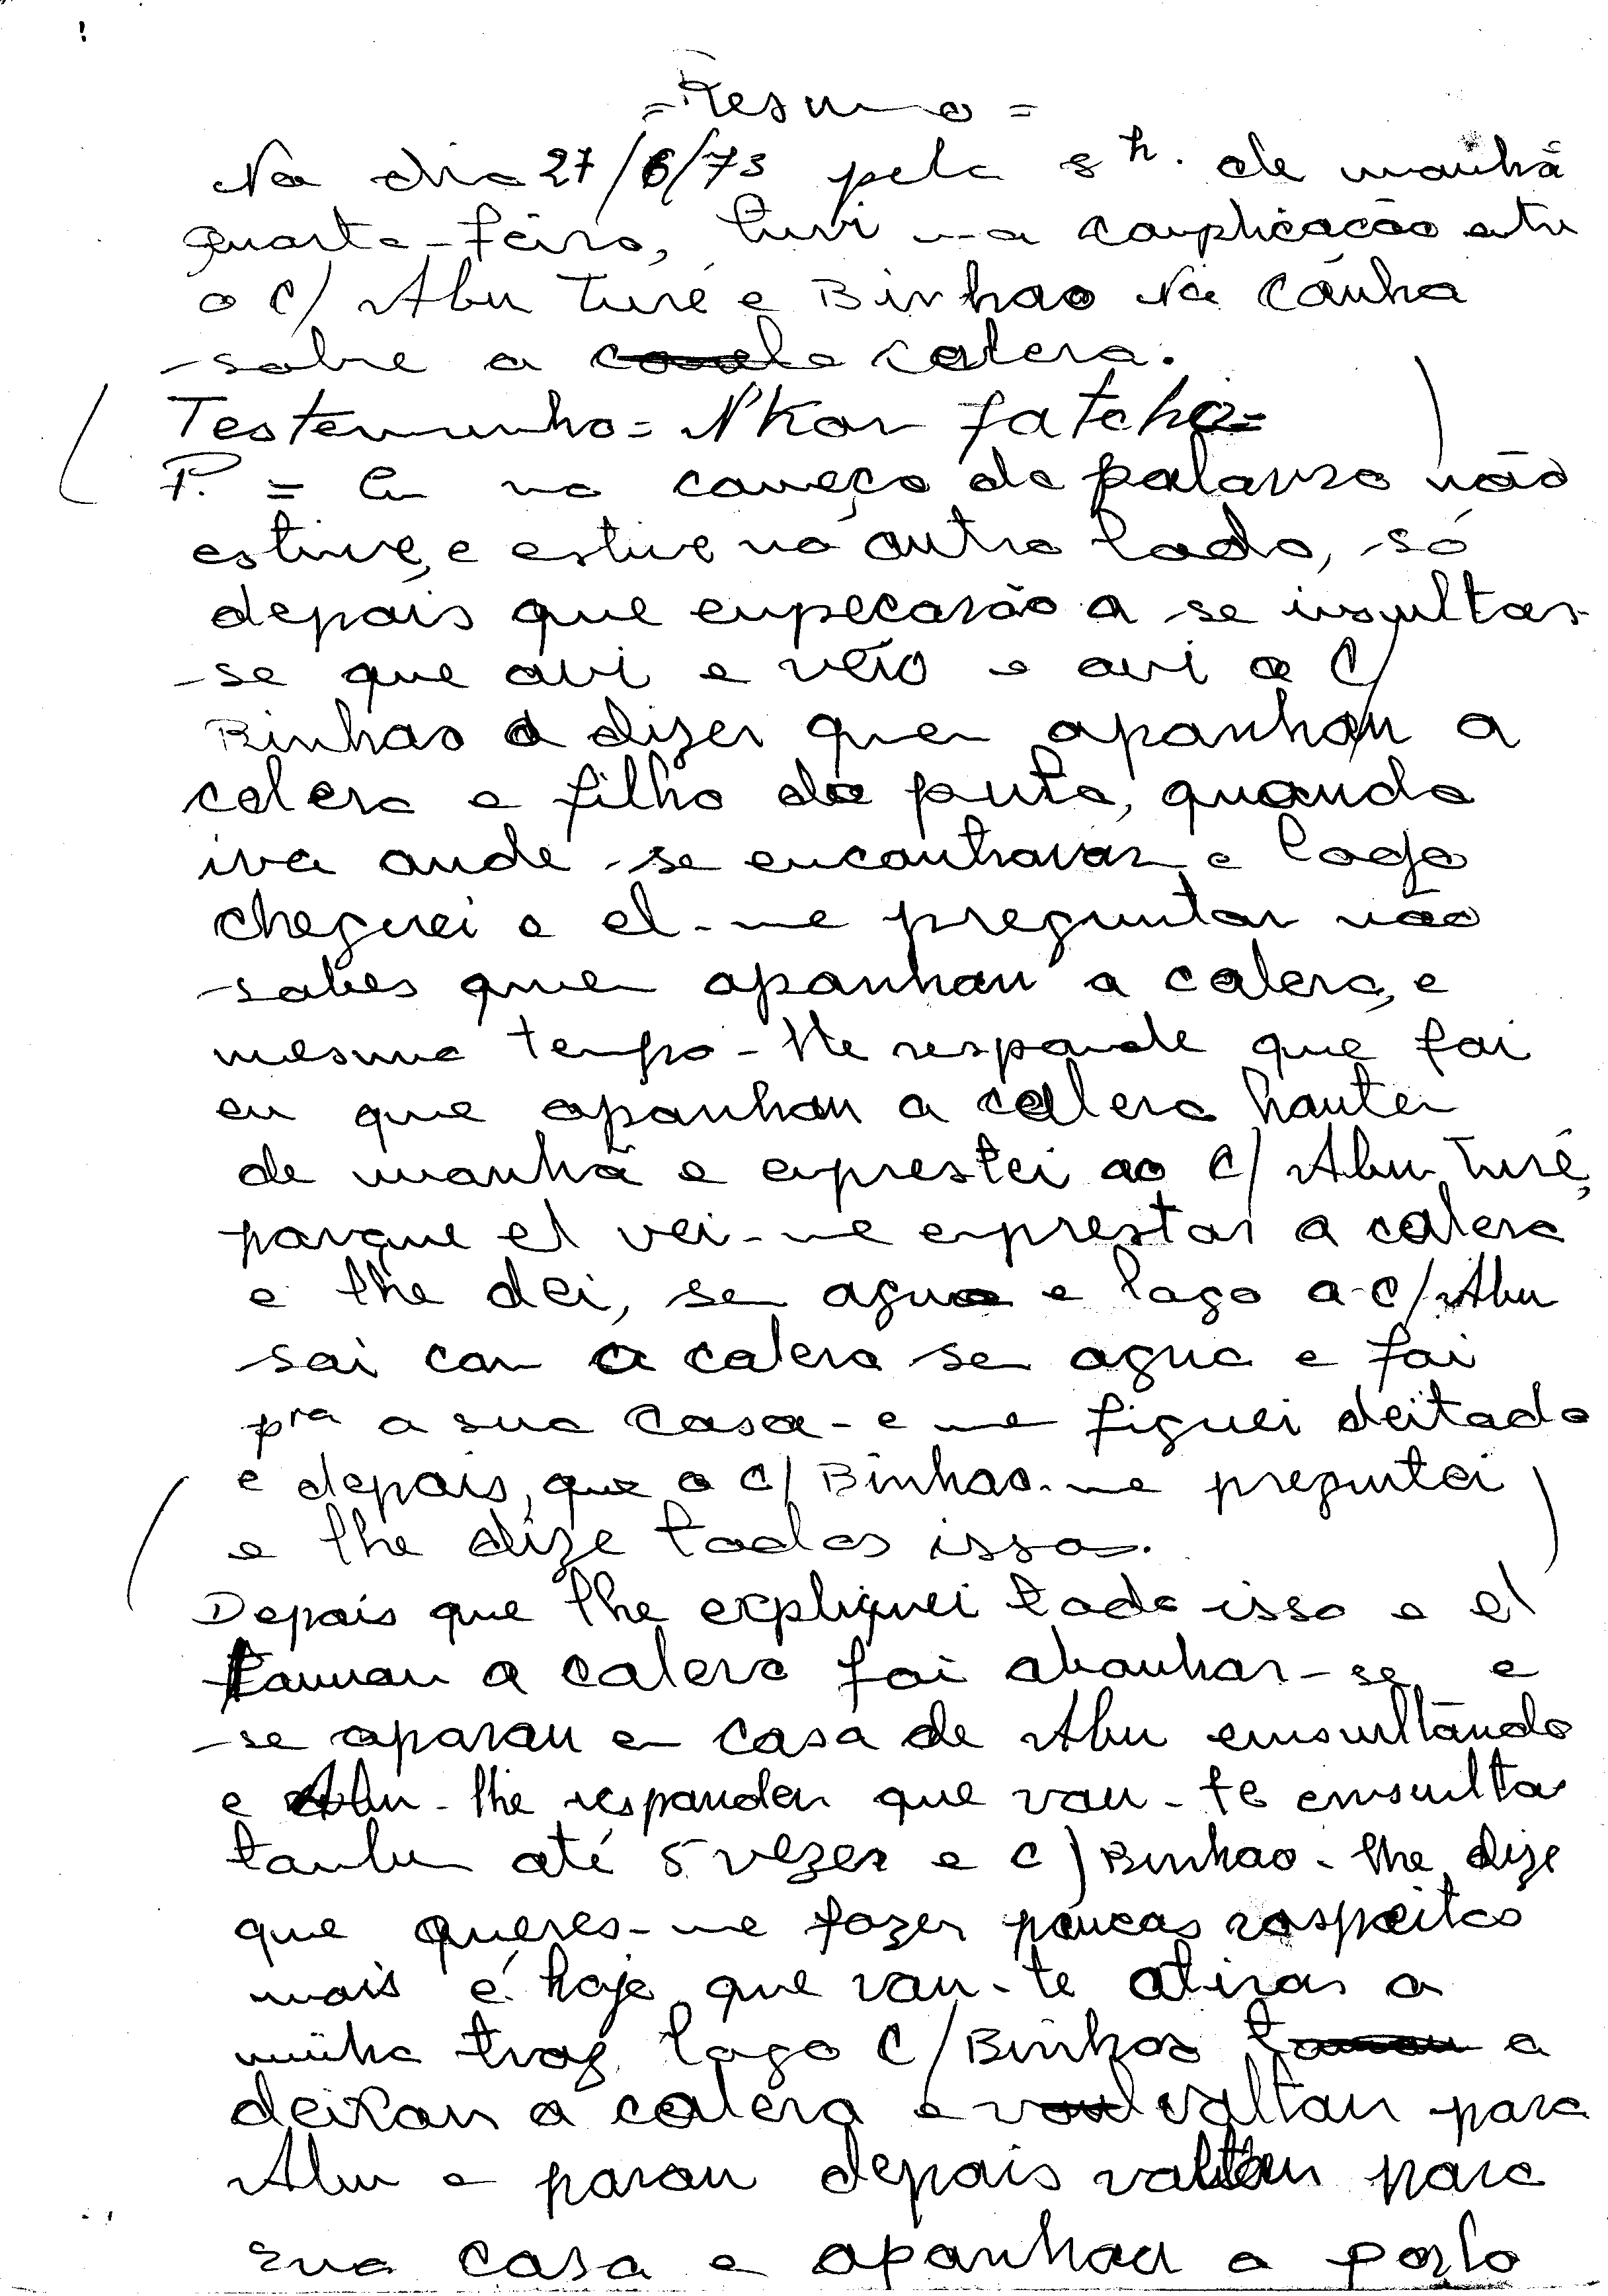 =Resumo=
No dia 27/6/73 pela 8h. de manhã
quarta-feira, tuvi uma complicação entre
o C/ Abu Turé e Binhao Na Canha
sobre a calera.
(Testemunho= N'Kon fatcha=)
P. = Eu no começo da palavra não
estive, e estive no outro lado, só
depois que enpecarão a se insultar-
-se que ouvi e veio e ouvi o C/
Binhao a dizer quen apanhou a
calera e filho da puta, quando
iva onde se encontravan e logo
cheguei e el-me preguntou não
sabes quen apanhou a calera, e
mesmo tenpo-lhe responde que foi
eu que apanhou a calera hanten
de manhã e enprestei ao C/ Abu Turé,
porque el vei-me enprestar a calera
e lhe dei, sen agua e logo a C/ Abu
sai con a calera sen agua e foi
pra a sua casa-e me fiquei deitado
(e depois, que o C/ Binhao-me preguntei
e lhe dize todos isso.)
Depois que lhe expliquei todo isso e el
tomou a calera foi abanhar-se, e
-se aparou en casa de Abu ensultando
e Abu-lhe responden que vou-te ensultar
tanben até 5 vezes e C/ Binhao-lhe dize
que queres-me fazer poucas respeitos
mais é hoje que vou-te atirar a
minha troz logo C/ Binhao a
deixou a calera e voltou para
Abu e parou depois voltou para
sua casa e apanhou a porlo